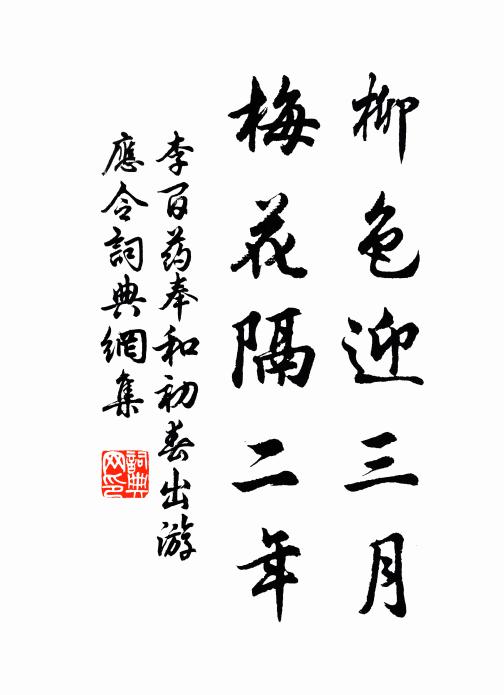 柳色迎三月
梅花隔二年
李百药奉和初春出游
應令詞典網集
詞典网印